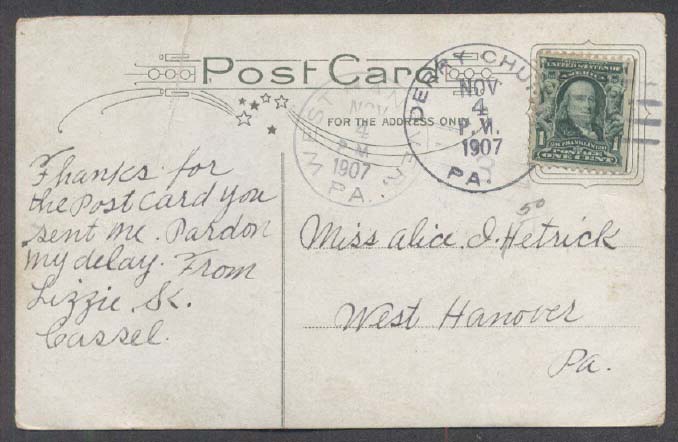 Post Card
FOR THE ADDRESS ONLY
WEST HANOVER
NOV
4
P.M.
1907
PA.
DERRY CHU
NOV
4
P.M.
1907
PA.
UNITED STATES OF
1 1
FRANKLIN
ONE CENT
50
Thanks for
the Post Card you
sent me. Pardon
my delay. From
Lizzie. K.
Cassel.
Miss Alice. I. Hetrick
West Hanover
Pa.